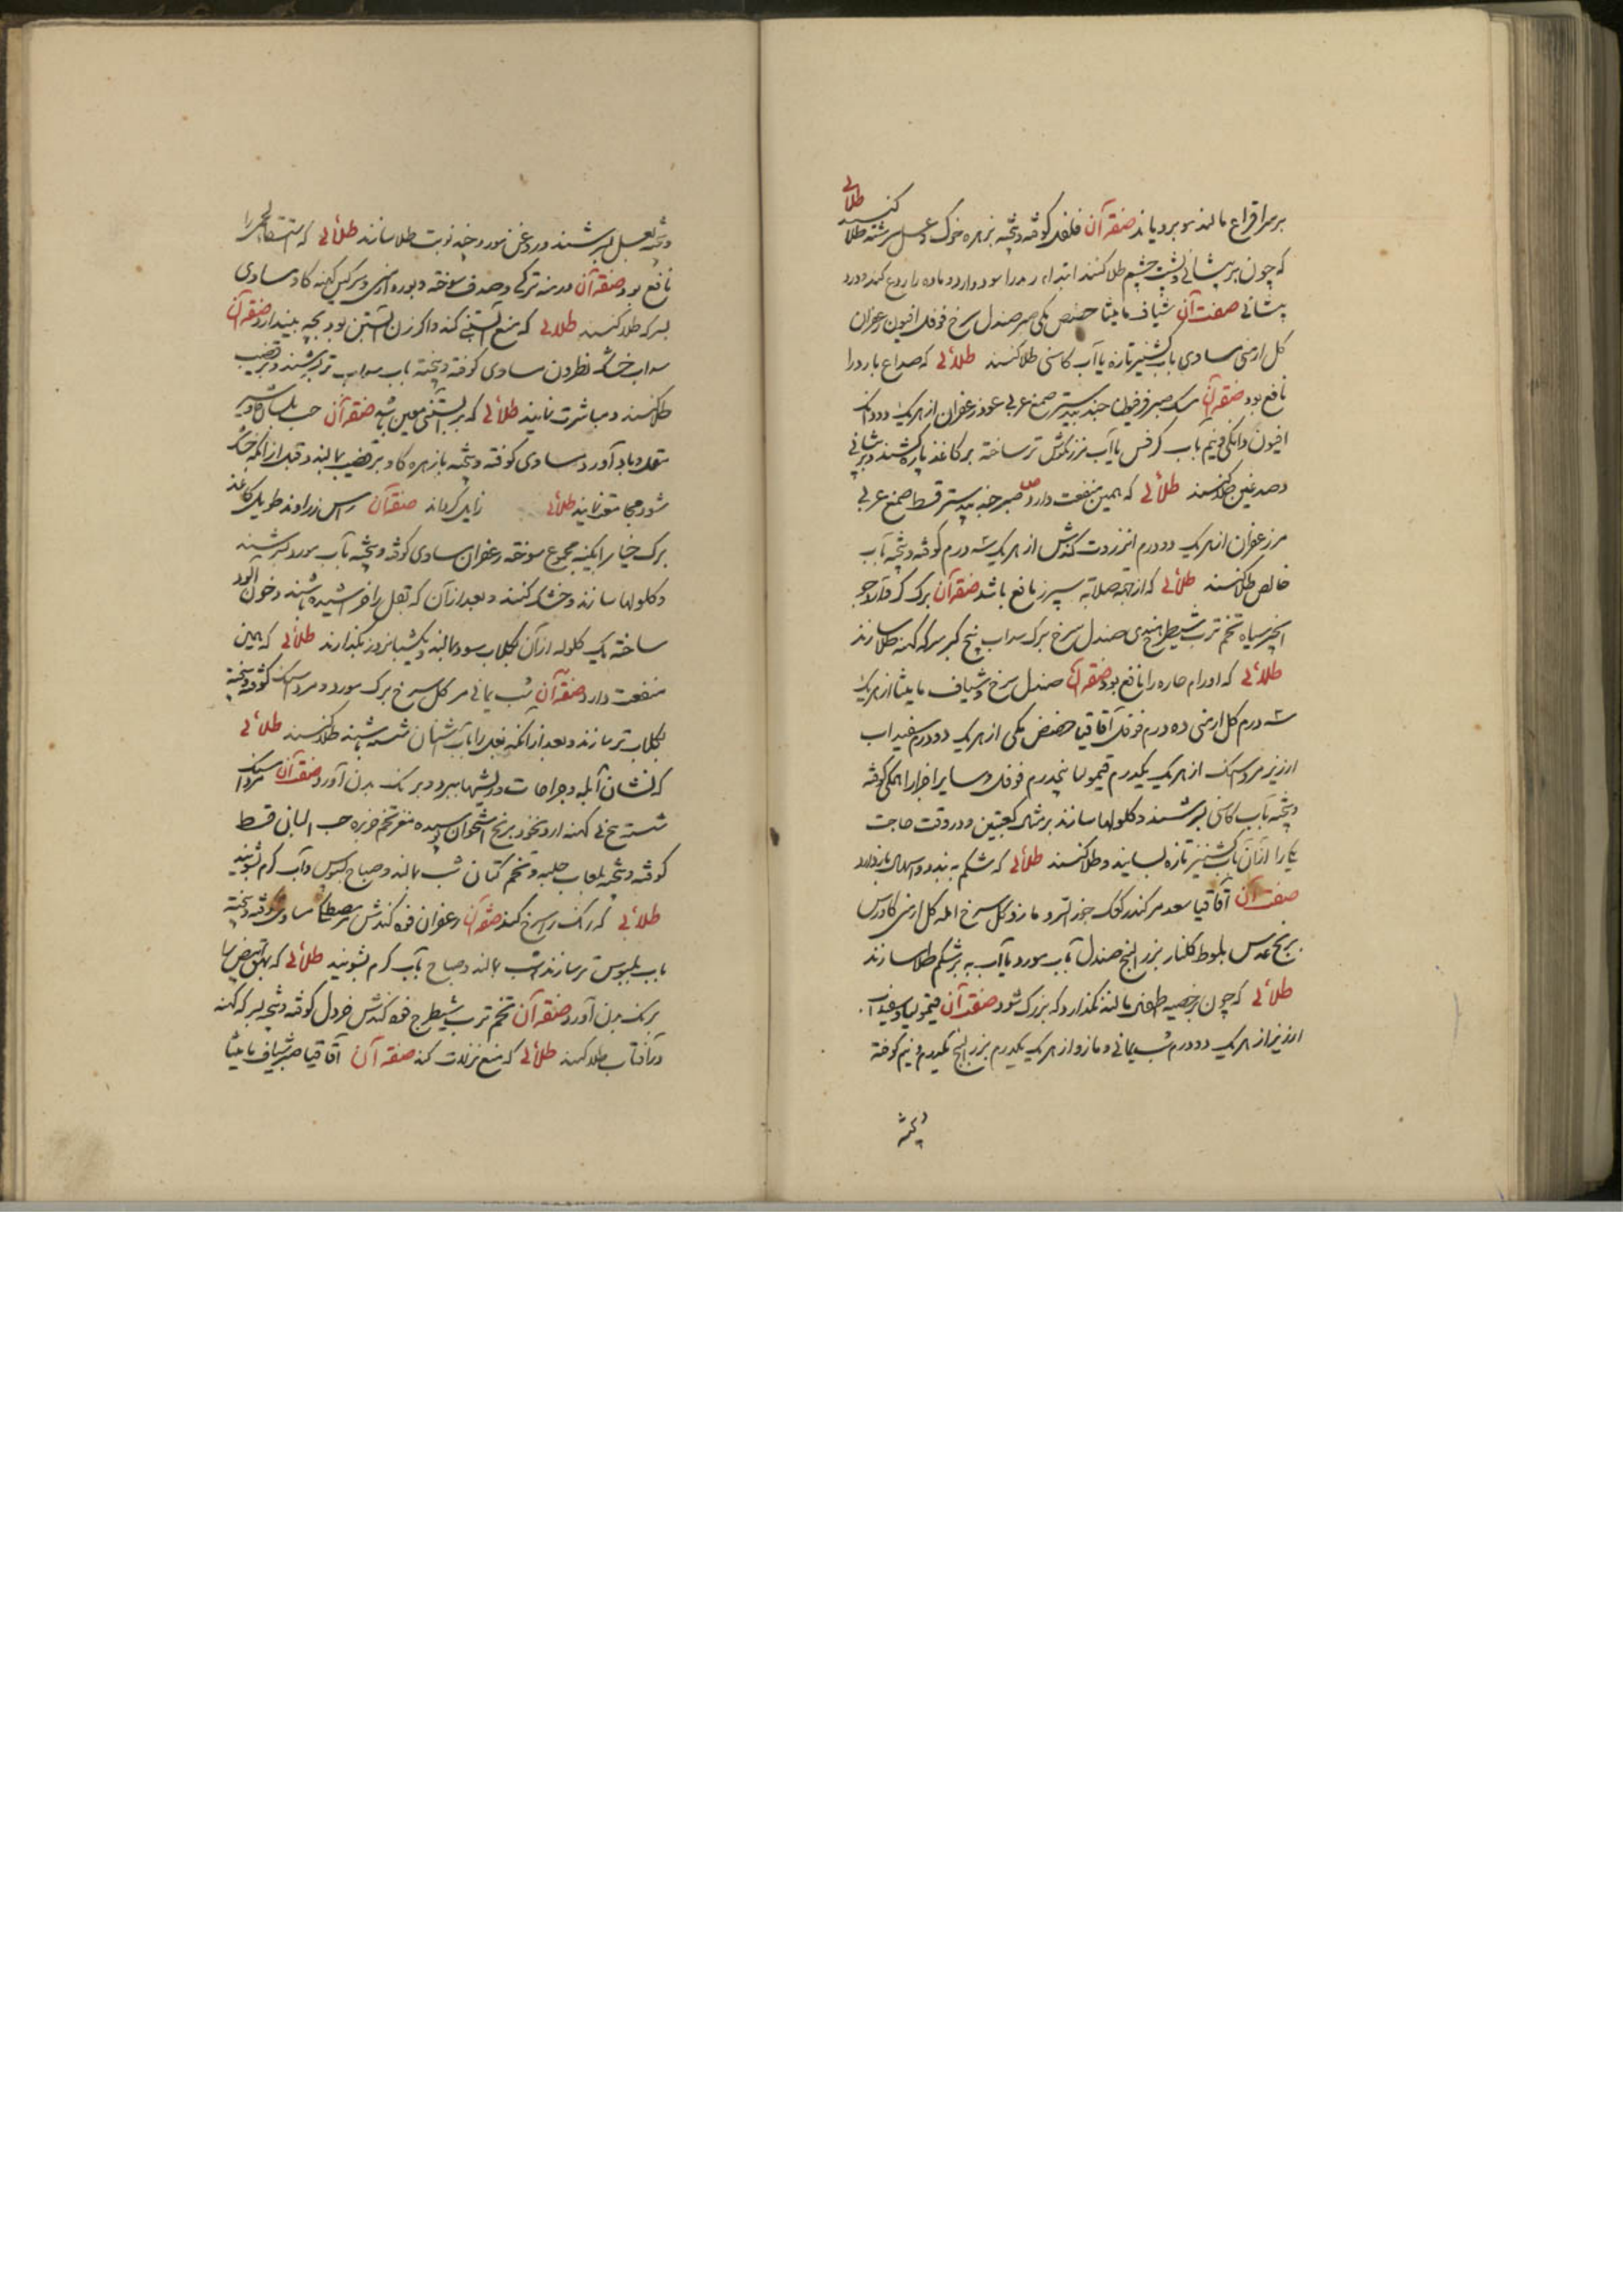 بر سر اقراع مالند مو برویاند صفة آن فلفل کوفته و پخته بزهره خوک و عسل سرشته طلا کنند طلائی
که چون بر پیشانی و پشت چشم طلا کنند ابتداء رمد را سود دارد و ماده را ردع کند و درد
پیشانی صفت آن شیاف مامیثا حضض مکی صبر صندل سرخ فوفل افیون زعفران
کل ارمنی مساوی بآب کشنیز تازه یا آب کاسنی طلا کنند طلائی که صداع بارد را
نافع بود صفة آن مسک صبر فرفیون جند بیدستر صمغ عربی عود زعفران از هر یک دو دانک
افیون دانکی و نیم بآب کرفس یا آب مرزنکوش تر ساخته بر کاغذ پاره کشند و بر پیشانی
و صدغین طلا کنند طلائی که همین منفعت دارد ص صبر جند بیدستر قسط صمغ عربی
مر زعفران از هر یک دو درم انزروت کندش از هر یک سه درم کوفته و پخته بآب
خالص طلا کنند طلائی که از جهة صلابه سپرز نافع باشد صفة آن برک کرفس
انجیر سیاه تخم ترب شیطرج هندی صندل سرخ برک سداب بیخ کبر سرکه کهنه طلا سازند
طلائی که اورام حاره را نافع بود صفة آن صندل سرخ و شیاف مامیثا از هر یک
سه درم کل ارمنی ده درم فوفل آقاقیا حضض مکی از هر یک دو درم سفیداب
ارزیز مرداسنک از هر یک یکدرم قیمولیا پنجدرم فوفل و سایر اجزا را همکی کوفته
و پخته بآب کاسنی بسرشند و کلولها سازند بر مثال کعبتین و در وقت حاجت
یکی را از آن بآب کشنیز تازه بسایند و طلا کنند طلائی که شکم به بندد و اسهال باز دارد
صفت آن آقاقیا سعد مر کندر کوک جوز السرو مازو کل سرخ امله کل ارمنی کاورس
برنج عدس بلوط کلنار بزر البنج صندل بآب مورد یا آب به بر شکم طلا سازند
طلائی که چون بر خصیه طفل مالند نکذارد که بزرک شود صفة آن قیمولیا و سفیداب
ارزیز از هر یک دو درم شب یمانی و مازو از هر یک یکدرم بزر البنج یکدرم و نیم کوفته
و پخته
و پخته بعسل بسرشند و در روغن مورد چند نوبت طلا سازند طلائی که استسقاء لحمی را
نافع بود صفة آن درمنه ترکی و صدف سوخته و بوره ارمنی و سرکین کهنه کاو مساوی
بسرکه طلا کنند طلائی که منع آبستنی کند و اکر زن آبستن بود بچه بیندازد صفة آن
سداب خشک نطرون مساوی کوفته و پخته بآب سداب تر بسرشند و بر قضیب
طلا کنند و مباشرت نمایند طلائی که بر آبستنی معین باشد صفة آن حب بلسان
مقل و باد آورد مساوی کوفته و پخته بازهره کاو بر قضیب بمالند و قبل از آنکه خشک
شود مجامعت نمایند طلائی زایل کرداند صفة آن راس زراوند طویل کاغذ
برک خیار آبکینه مجموع سوخته زعفران مساوی کوفته و پخته بآب مورد بسرشند
و کلولها سازند و خشک کنند و بعد از آن که ثفل را خراشیده باشند و خون آلود
ساخته یک کلوله از آن بکلاب سوده مالند و یکشبانروز بکذارند طلائی که همین
منفعت دارد صفة آن شب یمانی مر کل سرخ برک مورد و مرداسنک کوفته و پخته
بکلاب تر سازند و بعد از آنکه بغل را بآب اشنان شسته باشند طلا کنند طلائی
که نشان آبله و جراحات و ریشها ببرد و برنک بدن آورد صفة آن مرداسنک
شسته بیخ نی کهنه ارد نخود برنج استخوان پوسیده مغز تخم خربزه حب البان قسط
کوفته و پخته بلعاب حلبه و تخم کتان شب بمالند و صباح بسبوس و آب کرم بشویند
طلائی که رنک را سرخ کند صفة آن زعفران فوه کندش مر مصطکی مساوی کوفته و پخته
بآب بلبوس تر سازند شب بمالند و صباح بآب کرم بشویند طلائی که بهق ابیض را
برنک بدن آورد صفة آن تخم ترب شیطرج فوه کندش خردل کوفته و پخته بسرکه کهنه
در آفتاب طلا کنند طلائی که منع نزلات کند صفة آن آقاقیا صبر شیاف مامیثا